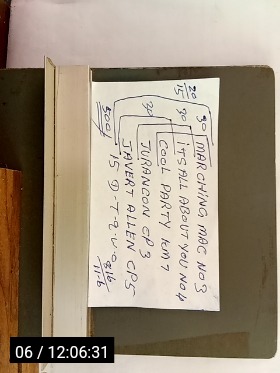 30 MARCHING MAC NO 3
20
15 30 ITS ALL ABOUT YOU NO 4
COOL PARTY KM 7
30 JURANCON CP 3
JAVERT ALLEN CP5
500/
15 D-T-Q-U-Q 9/6
11-6
06 / 12:06:31